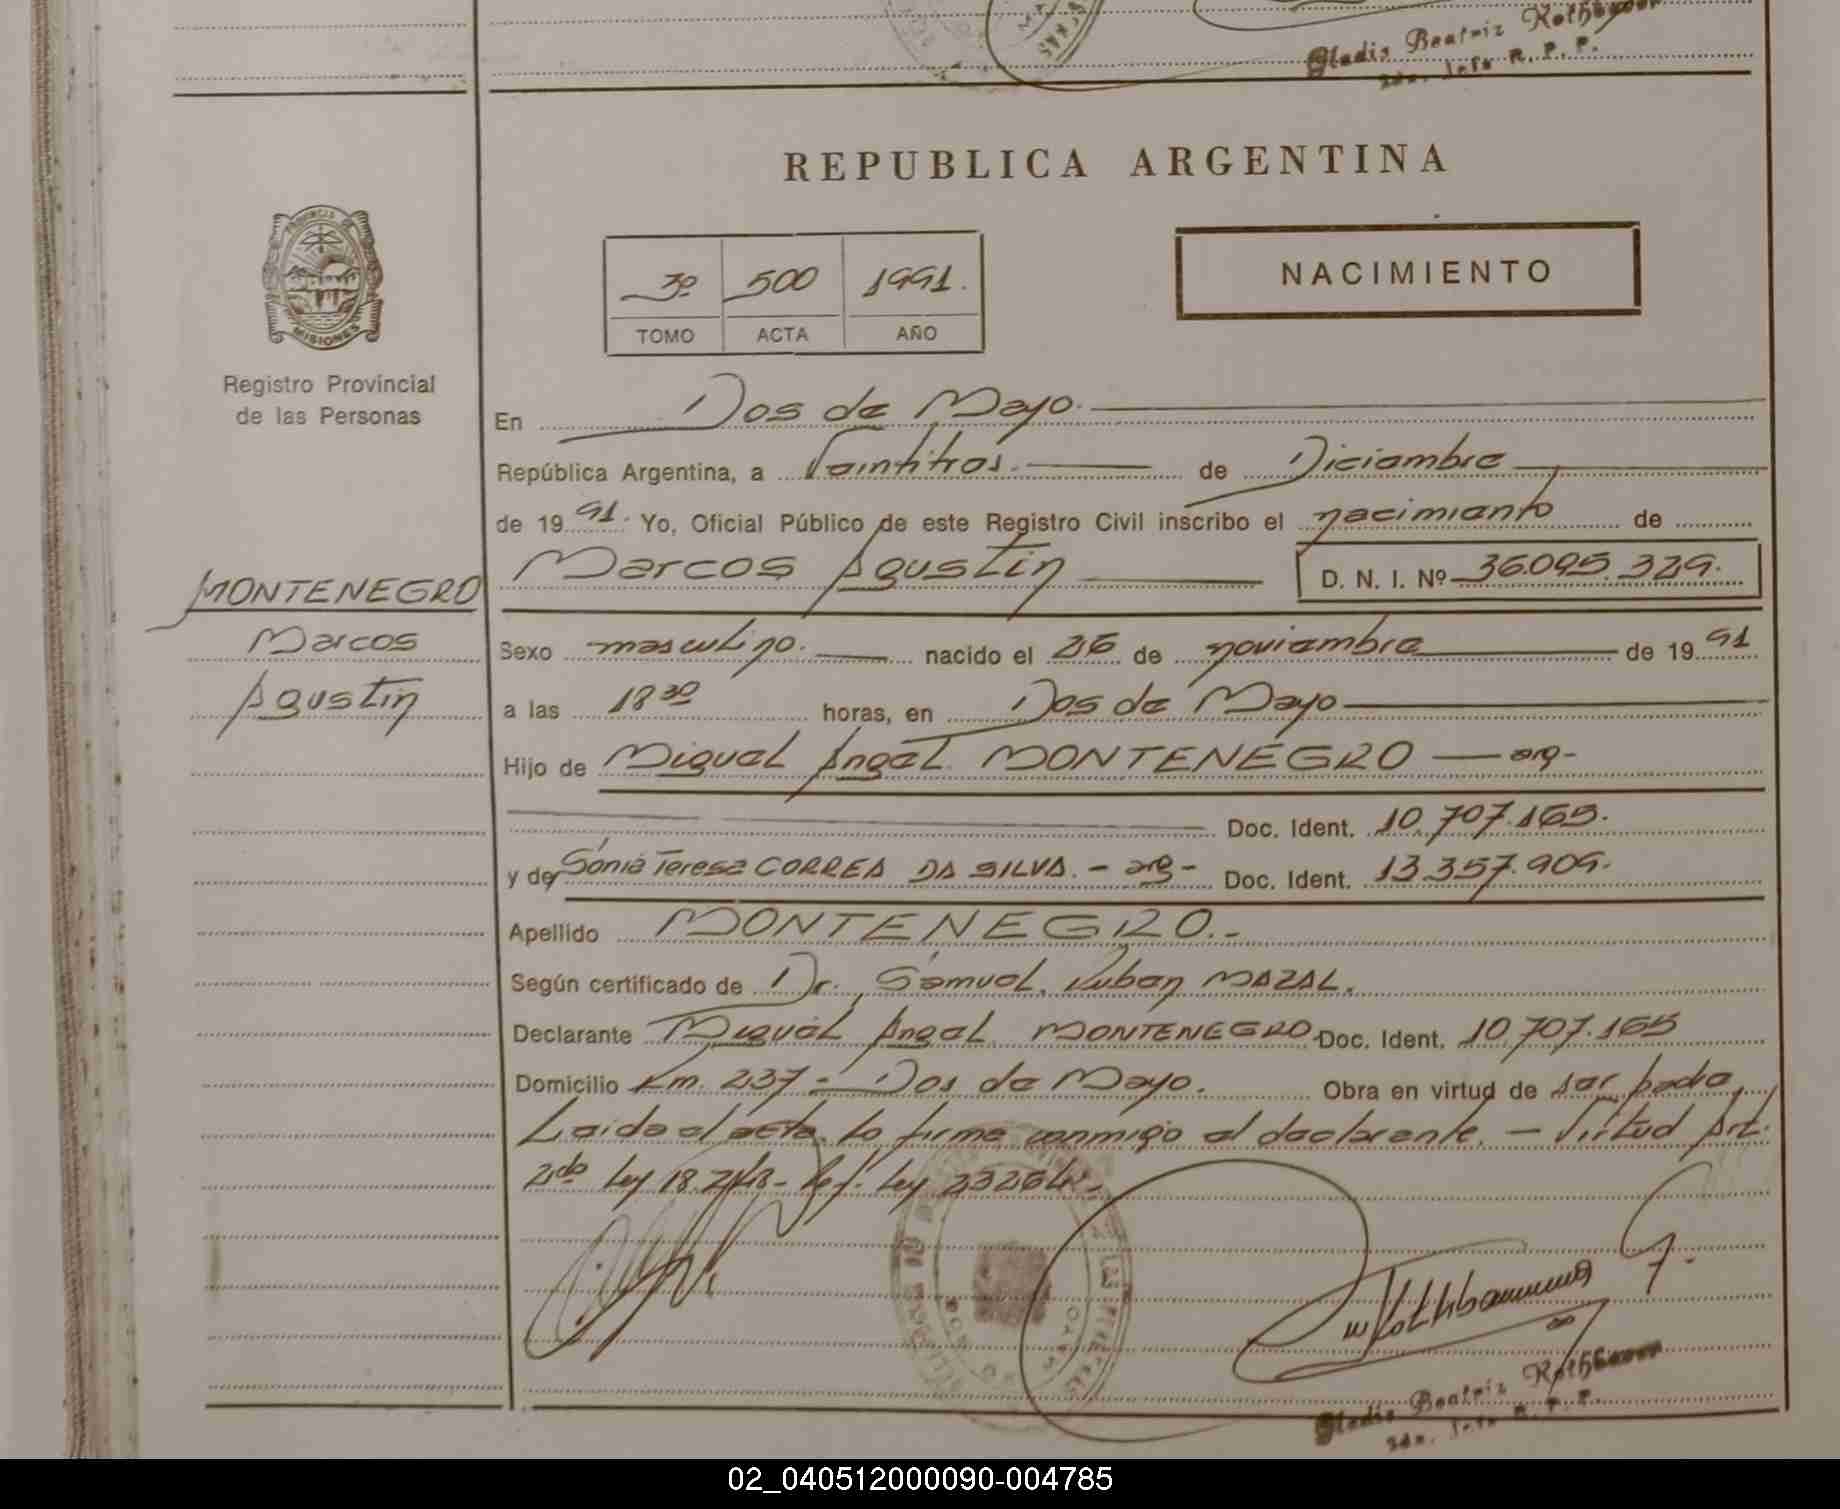 Gladis Beatriz Rothbauer
2da. Jefe R. P. P.
REPUBLICA ARGENTINA
PROVINCIA DE
MISIONES
3º 500 1991.
TOMO ACTA AÑO
NACIMIENTO
Registro Provincial
de las Personas
En Dos de Mayo.
República Argentina, a Veintitres. de Diciembre
de 1991. Yo, Oficial Público de este Registro Civil inscribo el nacimiento de
Marcos Agustin D. N. I. Nº 36.095.329.
MONTENEGRO
Marcos
Agustin
Sexo masculino. nacido el 26 de noviembre de 1991
a las 18 30 horas, en Dos de Mayo
Hijo de Miguel Angel MONTENEGRO — arg-
Doc. Ident. 10.707.165.
y de Sonia Teresa CORREA DA SILVA. - arg- Doc. Ident. 13.357.909.
Apellido MONTENEGRO.-
Según certificado de Dr. Samuel Ruben MAZAL.
Declarante Miguel Angel MONTENEGRO. Doc. Ident. 10.707.165
Domicilio Km. 237 - Dos de Mayo. Obra en virtud de ser padre
Leida el acta, la firma conmigo el declarante. - Virtud Art.
2do Ley 18.248- Ref. Ley 23264.-
Gladis Beatriz Rothbauer
2da. Jefe R. P. P.
02_040512000090-004785